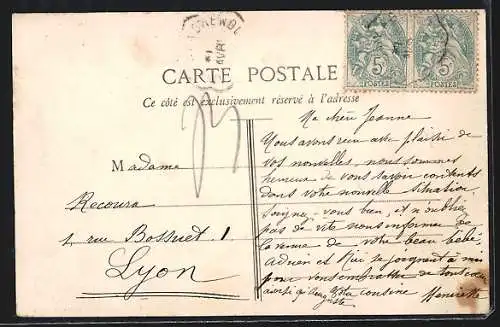 CARTE POSTALE
Ce côté est exclusivement réservé à l'adresse
5c 5c
POSTES POSTES
Madame
Recoura
1 rue Bossuet 1
Lyon
Ma chère Jeanne
Nous avons reçu avec plaisir de
vos nouvelles, nous sommes
heureux de vous savoir contents
dans votre nouvelle situation,
soignez-vous bien, et n'oubliez
pas de vite nous informer de
la venue de votre beau bébé,
se joignant à moi
pour vous embrasser de tout cœur
Votre cousine Henriette